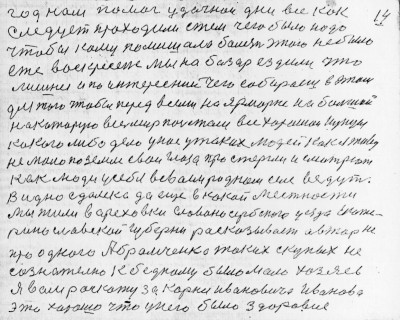 год нам помог удачной дни все как 14
следует проходили стем чего было надо
чтоби кому помишало больш этого небыло
еже воскресеня мы на базар ездили это
лишни а по интересний чего собираци в этом
для того чтоби перед всеми на Ярморке на большой
на которую всемир поустали все хорошии купци
какого либо дело у нас утаких людей как
не мало поземли свои глаза простёрли и смотрели
как люди усебя всвами родном селе ведут.
Видно сдалека да еще в какой Местности
мы жили в ореховки словано сербского уезда Екате-
ринославской Губерни расказывать автар не
про одного Абрамченко таких скупих не
сознателно к бедному было мало хозяев
я вам роскажу за Корния ивановича Иванова
Это хорошо что унего было здоровия